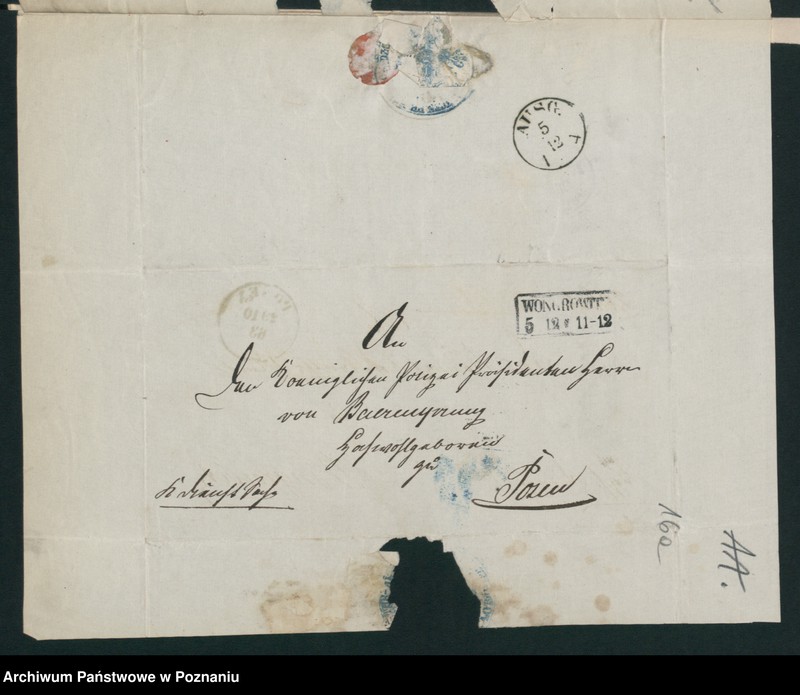 AUSG.
5
12
1
WONGROWITZ
5 12 11-12
An
Den Koeniglichen Polizei Präsidenten Herrn
von Baerensprung
Hochwohlgeboren
zu
Posen
K Dienst Sache
16a
AA.
Archiwum Państwowe w Poznaniu